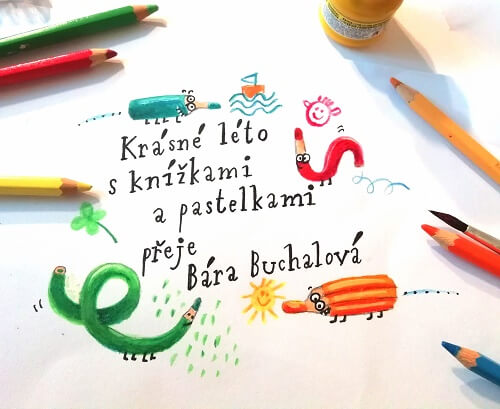 Krásné léto
s knížkami
a pastelkami
přeje
Bára Buchalová